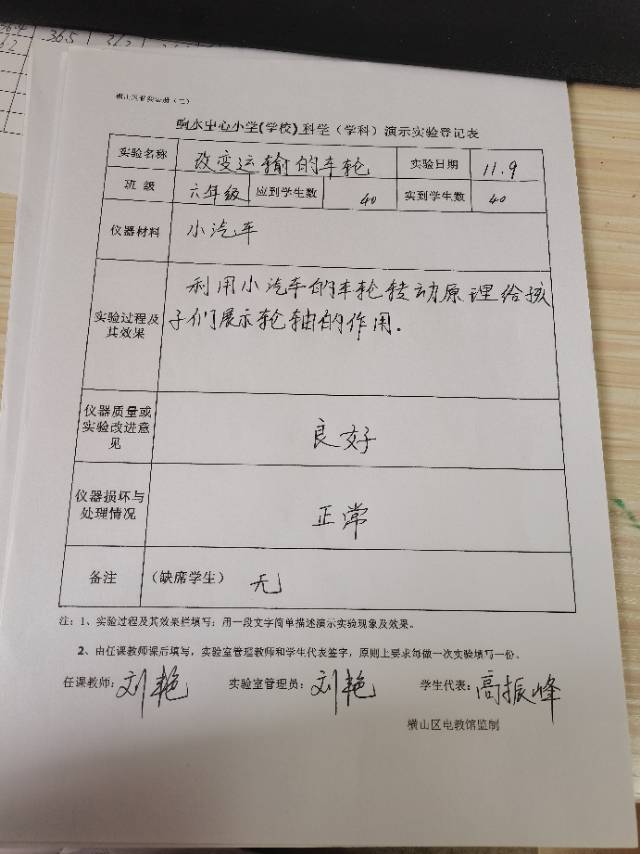 响水中心小学(学校)科学(学科)演示实验登记表
实验名称 改变运输的车轮 实验日期 11.9
班 级 六年级 应到学生数 40 实到学生数 40
仪器材料 小汽车
实验过程及其效果
利用小汽车的车轮转动原理给孩
子们展示轮轴的作用.
仪器质量或
实验改进意
见
良好
仪器损坏与
处理情况
正常
备注 (缺席学生) 无
注:1、实验过程及其效果栏填写:用一段文字简单描述演示实验现象及效果。
2、由任课教师课后填写,实验室管理教师和学生代表签字,原则上要求每做一次实验填写一份。
任课教师:刘艳 实验室管理员:刘艳 学生代表:高振峰
横山区电教馆监制
365